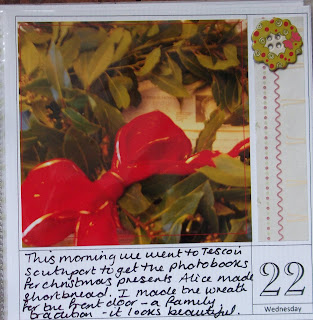 This morning we went to Tesco in
Southport to get the photobooks
for christmas presents Alice made
shortbread. I made the wreath
for the front door - a family
tradition - it looks beautiful.
22
Wednesday